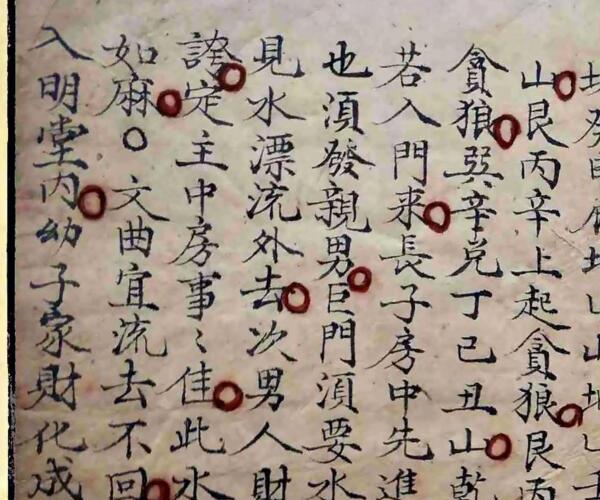 山艮丙辛上起貪狼艮丙
貪狼巽辛兑丁巳丑山乾
若入門来長子房中先進
也須發親男巨門須要水
見水漂流外去次男人財
證定主中房事〻佳此水
如麻○文曲宜流去不回
入明堂内幼子家財化成